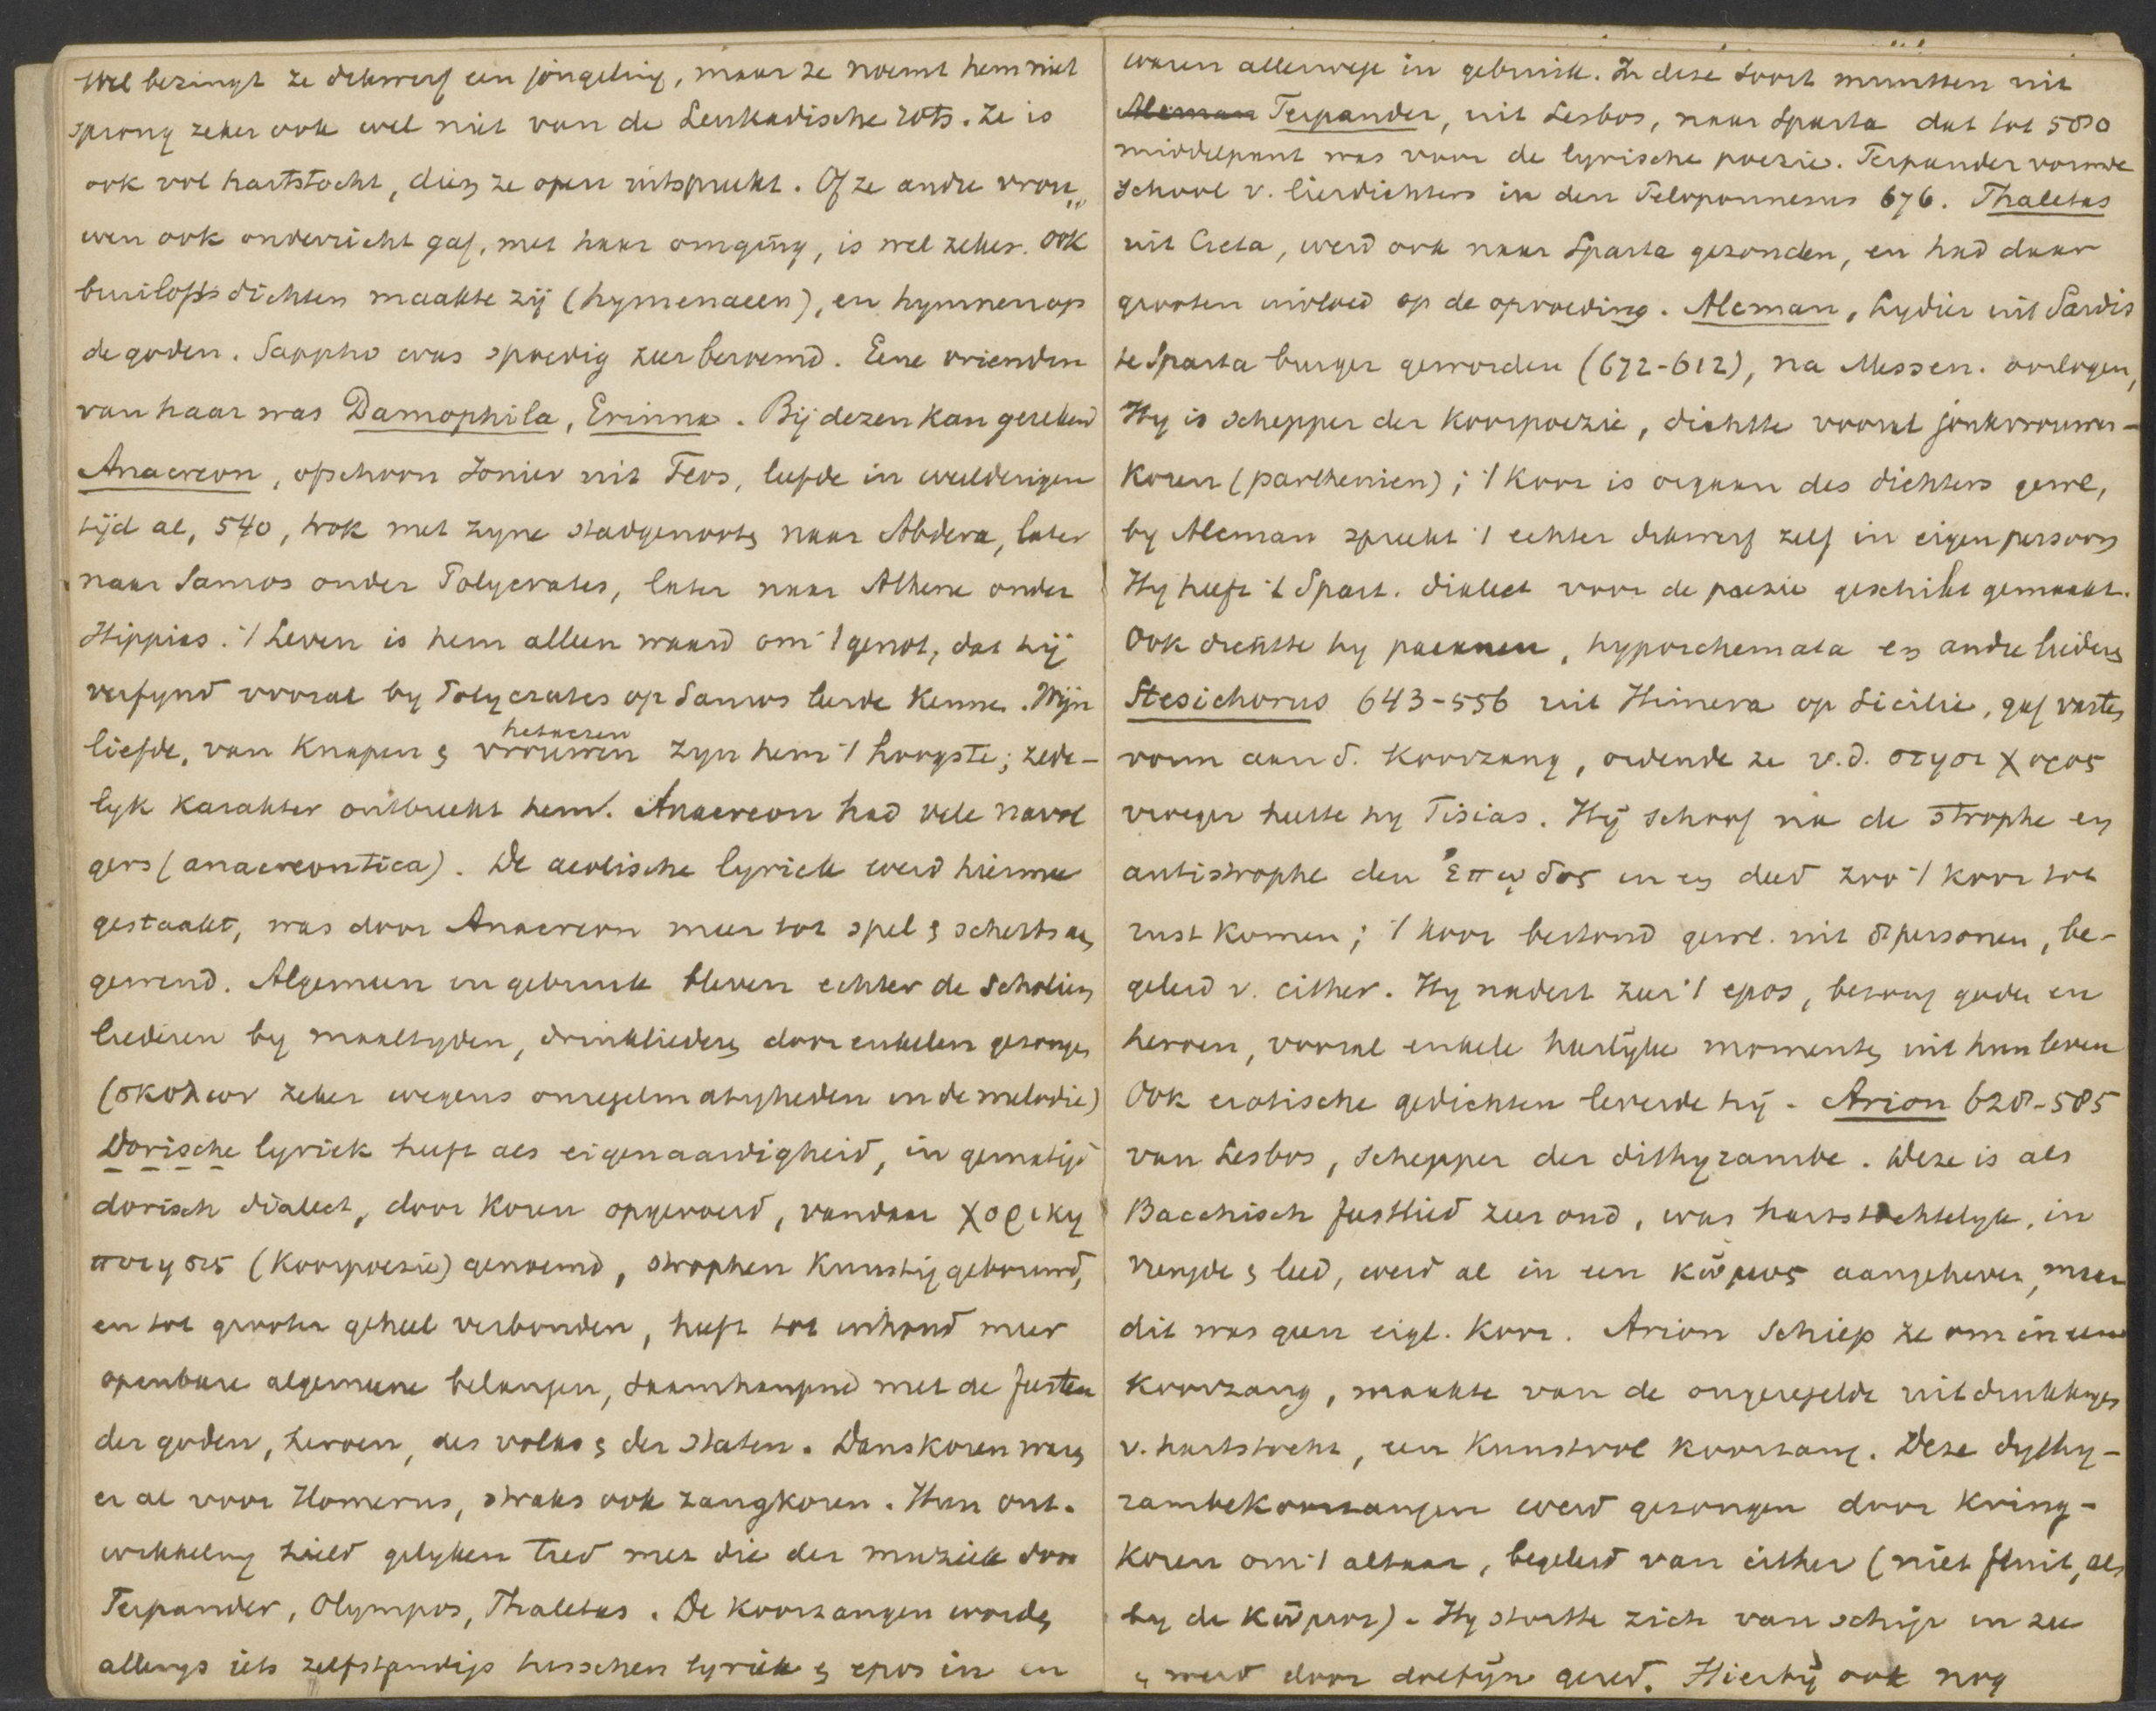 Wel bezingt ze dikwerf een jongeling, maar ze noemt hem niet
sprong zeker ook wel niet van de Leukadische rots. Ze is
ook vol hartstocht, dien ze open uitspreekt. Of ze andre vrou„
wen ook onderricht gaf, met haar omging, is wel zeker. Ook
bruiloftsdichten maakte zij (hymenaeen), en hymnen op
de goden. Sappho was spoedig zeer beroemd. Eene vriendin
van haar was Damophila, Erinna. Bij dezen kan gerekend
Anacreon, ofschoon Ionier uit Teos, leefde in weelderigen
tijd al, 540, trok met zyne stadgenooten naar Abdera, later
naar Samos onder Polycrates, later naar Athene onder
Hippias. 't Leven is hem alleen waard om 't genot, dat hij
verfynd vooral by Polycrates op Samos leerde kennen. Wijn
liefde, van knapen & vrouwen hetaeren zyn hem 't hoogste; zede-
lyk karakter ontbreekt hem. Anacreon had vele navol
gers (anacreontica). De aeolische lyriek werd hiermee
gestaakt, was door Anacreon meer tot spel & scherts aan
gewend. Algemeen in gebruik bleven echter de Scholien
liederen by maaltyden, drinkliederen door enkelen gezongen
(σκολιον zeker wegens onregelmatigheden in de melodie)
Dorische lyriek heeft als eigenaardigheid, in gematigd
dorisch dialect, door koren opgevoerd, vandaar χορικη
ποιησις (koorpoezie) genoemd, strophen kunstig gebouwd,
en tot grooter geheel verbonden, heeft tot inhoud meer
openbare algemeene belangen, saamhangend met de feesten
der goden, heroen, des volks & der staten. Danskoren waren
er al voor Homerus, straks ook zangkoren. Hun ont-
wikkeling hield gelyken tred met die der muziek door
Terpander, Olympos, Thaletas. De koorzangen worden
allengs iets zelfstandigs tusschen lyriek & epos in en
waren allerwege in gebruik. In deze soort muntten uit
Alcman Terpander, uit Lesbos, naar Sparta dat tot 580
middelpunt was voor de lyrische poezie. Terpander vormde
school v. lierdichters in den Peloponnesus 676. Thaletas
uit Creta, werd ook naar Sparta gezonden, en had daar
grooten invloed op de opvoeding. Alcman, Lydier uit Sardis
te Sparta burger geworden (672-612), na Messen. oorlogen,
Hy is schepper der koorpoezie, dichtte vooral jonkvrouwen-
koren (parthenien); 't koor is orgaan des dichters gewl,
by Alcman spreekt 't echter dikwerf zelf in eigen persoon
Hy heeft 't Spart. dialect voor de poezie geschikt gemaakt.
Ook dichtte hy paeanen, hyporchemata en andre liederen
Stesichorus 643-556 uit Himera op Sicilie, gaf vasten
vorm aan d. koorzang, ordende ze v.d. στησι χορος
vroeger heette hy Tisias. Hij schoof na de strophe en
antistrophe den επῳδος in en deed zoo 't koor tot
rust komen; 't koor bestond gewl. uit 8 personen, be-
geleid v. cither. Hy nadert zeer 't epos, bezong goden en
heroen, vooral enkele heerlyke momenten uit hun leven
Ook erotische gedichten leverde hij. Arion 628-585
van Lesbos, schepper der dithyrambe. Deze is als
Bacchisch feestlied zeer oud, was hartstochtelyk, in
vreugde & leed, werd al in een κῶμος aangeheven, maar
dit was geen eigl. koor. Arion schiep ze om in een
koorzang, maakte van de ongeregelde uitdrukkingen
v. hartstocht, een kunstvol koorzang. Deze dythy-
rambekoorzangen werd gezongen door kring-
koren om 't altaar, begeleid van cither (niet fluit, als
by de κῶμος). Hy stortte zich van schip in zee
& werd door dolfijn gered. Hierbij ook nog